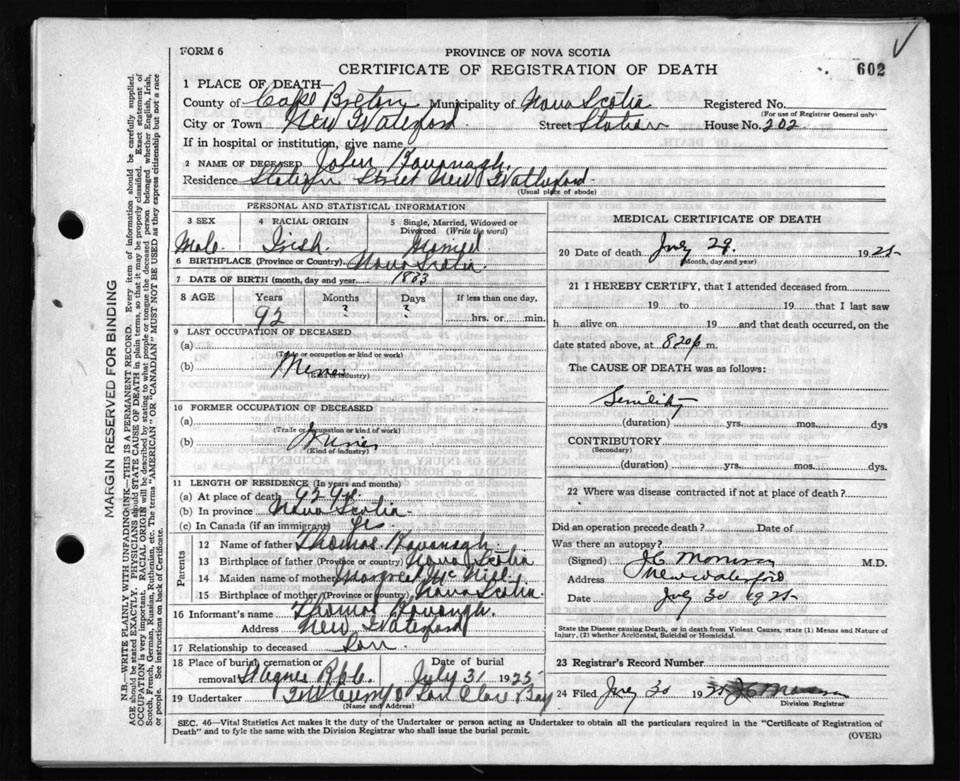 FORM 6
PROVINCE OF NOVA SCOTIA
CERTIFICATE OF REGISTRATION OF DEATH
602
1 PLACE OF DEATH—
County of Cape Breton Municipality of Nova Scotia Registered No.
(For use of Registrar General only)
City or Town New Waterford Street Station House No. 202
If in hospital or institution, give name
2 NAME OF DECEASED John Kavanagh.
Residence Station Street New Waterford
(Usual place of abode)
PERSONAL AND STATISTICAL INFORMATION
3 SEX 4 RACIAL ORIGIN 5 Single, Married, Widowed or Divorced (Write the word)
Male. Irish. Married
6 BIRTHPLACE (Province or Country) Nova Scotia.
7 DATE OF BIRTH (month, day and year) 1833
8 AGE Years Months Days If less than one day,
92 ? ? hrs. or min.
9 LAST OCCUPATION OF DECEASED
(a)
(Trade or occupation or kind of work)
(b) Miner
(Kind of industry)
10 FORMER OCCUPATION OF DECEASED
(a)
(Trade or occupation or kind of work)
(b) Miner
(Kind of industry)
11 LENGTH OF RESIDENCE (In years and months)
(a) At place of death 92 yr.
(b) In province Nova Scotia
(c) In Canada (if an immigrant) yes
Parents
12 Name of father Thomas Kavanagh.
13 Birthplace of father (Province or country) Nova Scotia
14 Maiden name of mother Margret McNeil.
15 Birthplace of mother (Province or country) Nova Scotia.
16 Informant's name Thomas Kavanagh.
Address New Waterford
17 Relationship to deceased Son
18 Place of burial, cremation or removal St Agnes Date of burial July 31 1925
19 Undertaker
(Name and Address)
MEDICAL CERTIFICATE OF DEATH
20 Date of death July 29. 1925
(Month, day and year)
21 I HEREBY CERTIFY, that I attended deceased from
19 to 19 that I last saw
h alive on 19 and that death occurred, on the
date stated above, at 820 p m.
The CAUSE OF DEATH was as follows:
Senility
(duration) yrs. mos. dys
CONTRIBUTORY
(Secondary)
(duration) yrs. mos. dys.
22 Where was disease contracted if not at place of death?
Did an operation precede death? Date of
Was there an autopsy?
(Signed) M.D.
Address New Waterford
Date July 30 1925
State the Disease causing Death, or in death from Violent Causes, state (1) Means and Nature of
Injury, (2) whether Accidental, Suicidal or Homicidal.
23 Registrar's Record Number
24 Filed July 30 1925
Division Registrar
SEC. 46—Vital Statistics Act makes it the duty of the Undertaker or person acting as Undertaker to obtain all the particulars required in the "Certificate of Registration of
Death" and to fyle the same with the Division Registrar who shall issue the burial permit.
(OVER)
MARGIN RESERVED FOR BINDING
N.B.—WRITE PLAINLY WITH UNFADING INK—THIS IS A PERMANENT RECORD. Every item of information should be carefully supplied.
AGE should be stated EXACTLY. PHYSICIANS should STATE CAUSE OF DEATH in plain terms, so that it may be properly classified. Exact statement of
OCCUPATION is very important. RACIAL ORIGIN will be described by stating to what people or tongue the deceased person belonged, whether English, Irish,
Scotch, French, German, Russian, Ruthenian, etc. The terms "AMERICAN" OR "CANADIAN" MUST NOT BE USED as they express citizenship but not a race
or people. See instructions on back of Certificate.